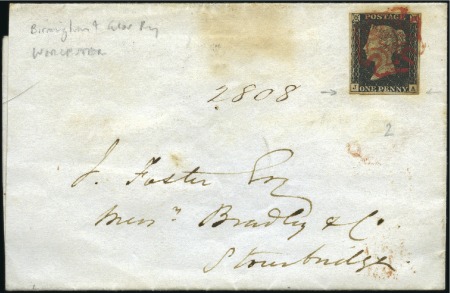 Birmingham & Glos Rly
WORCESTER
POSTAGE
J A
ONE PENNY
2808
2
J. Foster Esq
Messrs Bradley & Co.
Stourbridge